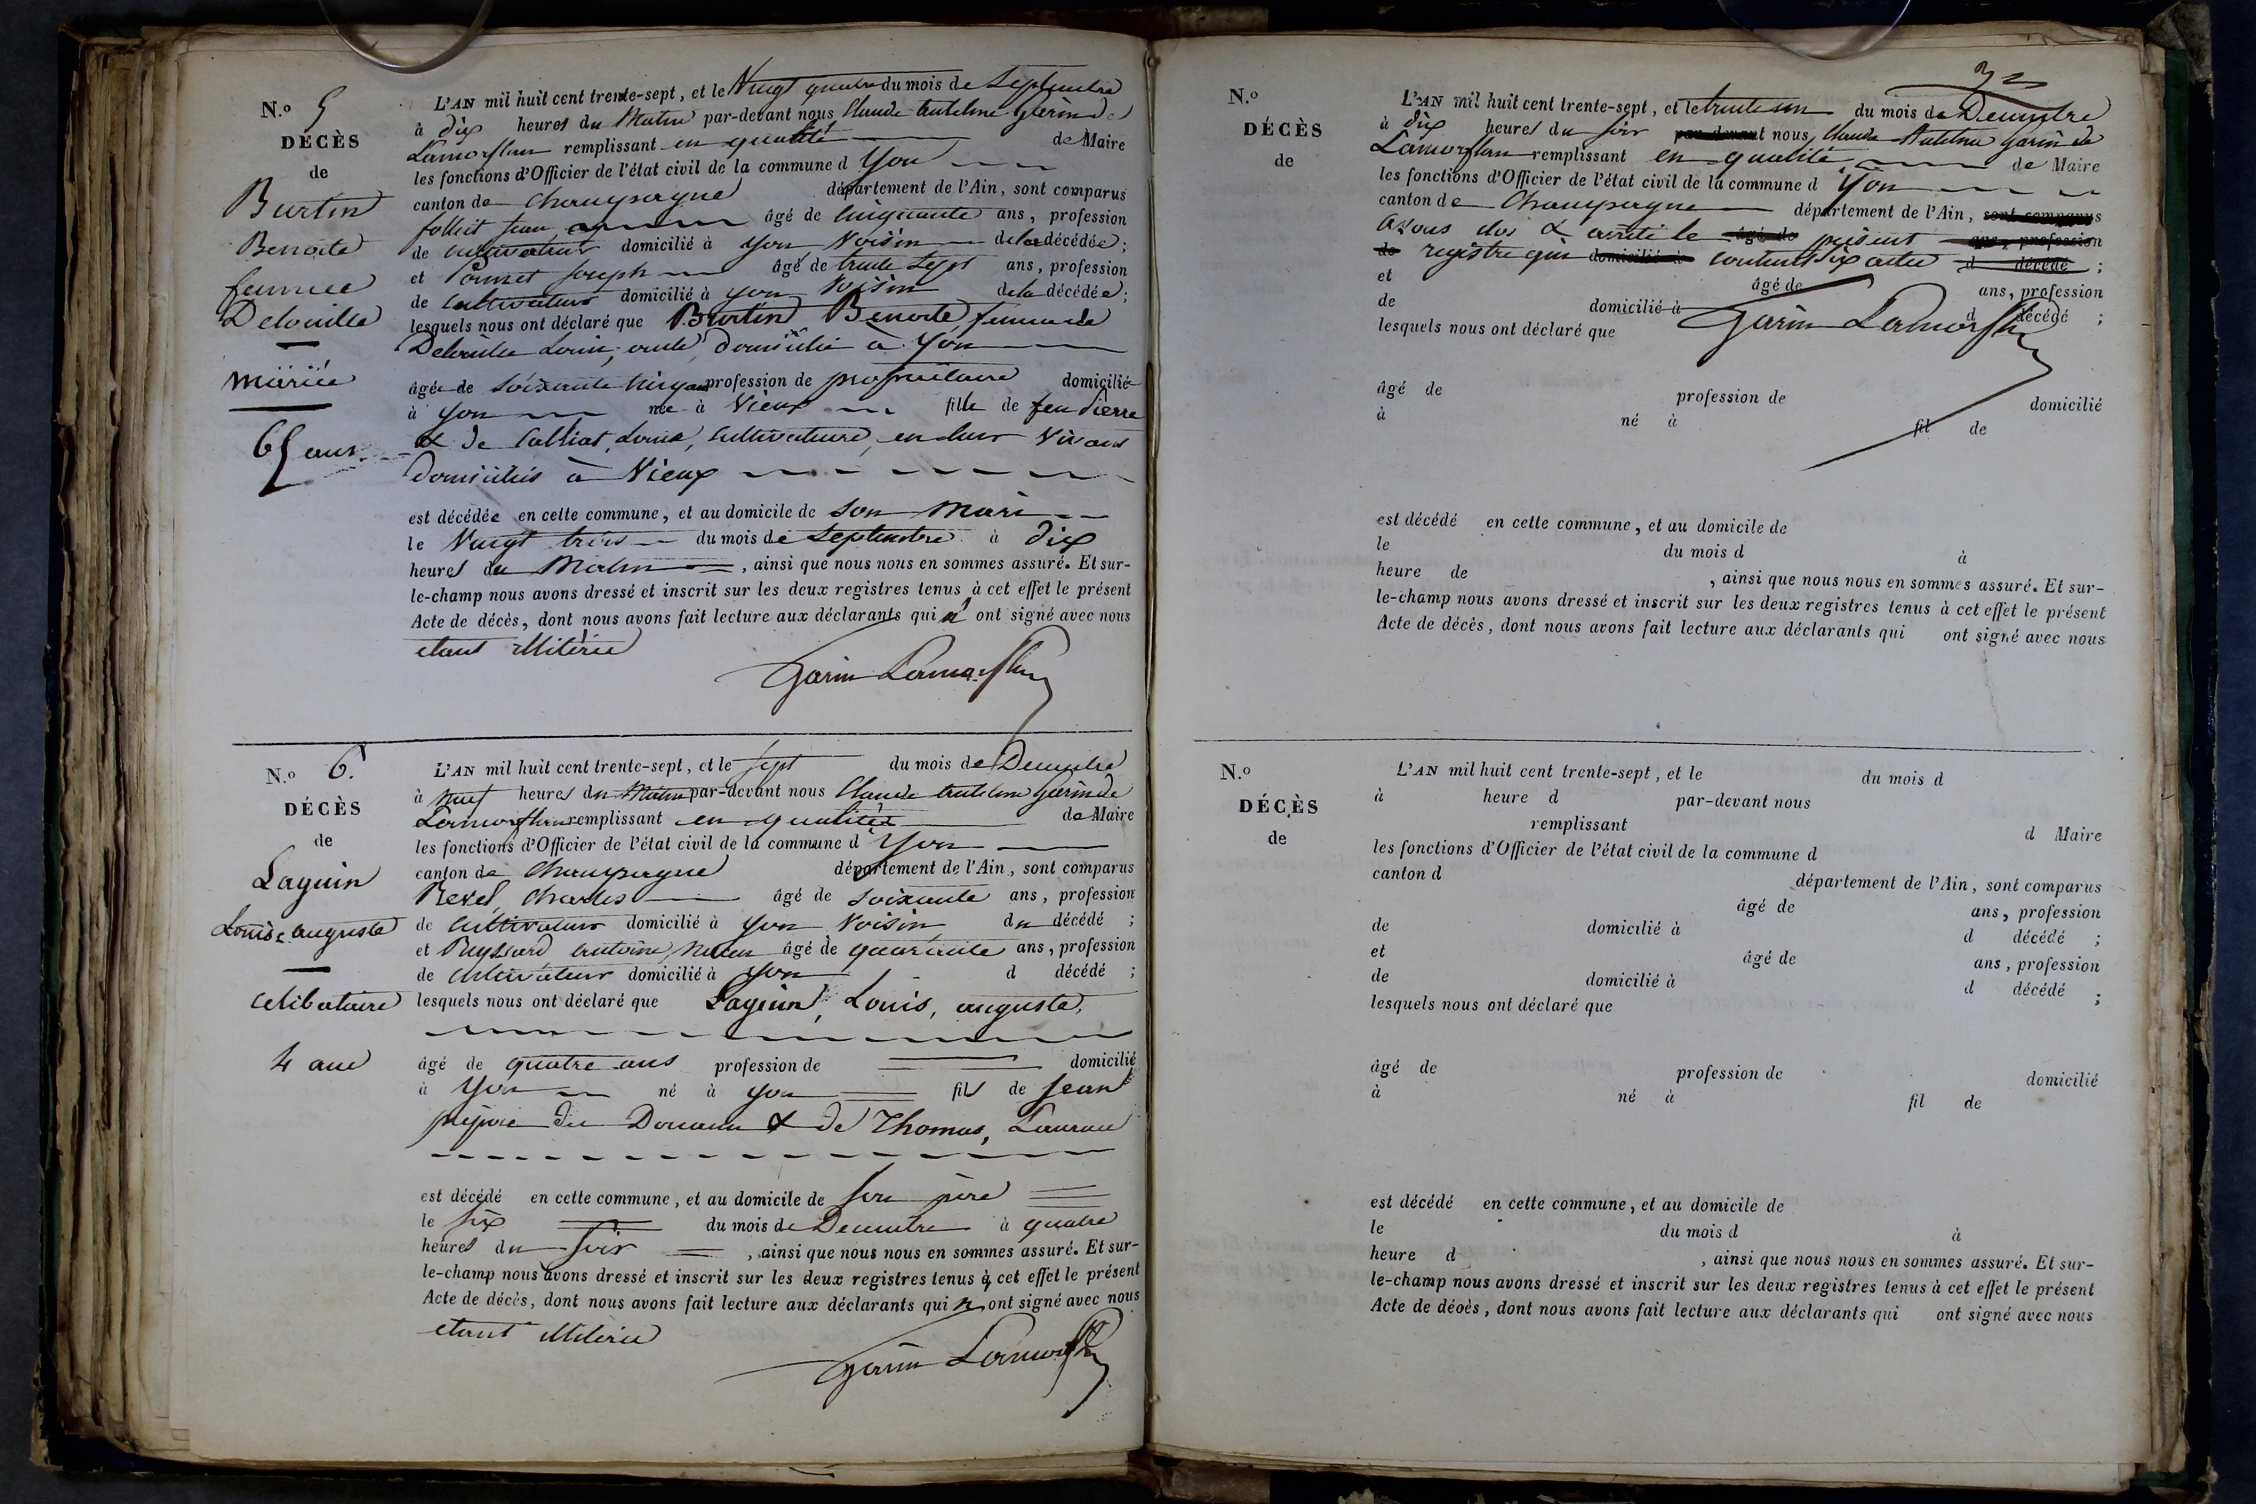 N.o 5
DÉCÈS
de
Burtin
Benoite
femme
Delouille
mariée
65 ans
L'AN mil huit cent trente-sept, et le Vingt quatre du mois de Septembre
à dix heures du Matin par-devant nous Claude Antelme Garin de
Lamorflan remplissant en qualité de Maire
les fonctions d'Officier de l'état civil de la commune d'Yon
canton de Champagne département de l'Ain, sont comparus
Jean âgé de Cinquante ans, profession
de cultivateur domicilié à Yon Voisin de la décédée;
et Joseph âgé de trente Sept ans, profession
de Cultivateur domicilié à Yon Voisin de la décédée;
lesquels nous ont déclaré que Burtin Benoite, femme de
Delouille Louis, domicilié à Yon
âgée de Soixante cinq ans profession de propriétaire domicilié
à Yon née à Vieux fille de feu Pierre
& de Calliat, Louise, Cultivateurs, en leur Vivant
Domiciliés à Vieux
est décédée en cette commune, et au domicile de son Mari
le Vingt trois du mois de Septembre à dix
heures du Matin, ainsi que nous nous en sommes assuré. Et sur-
le-champ nous avons dressé et inscrit sur les deux registres tenus à cet effet le présent
Acte de décès, dont nous avons fait lecture aux déclarants qui n' ont signé avec nous
étant illitéré
Garin Lamorflan
N.o 6.
DÉCÈS
de
Laguin
Louis auguste
célibataire
4 ans
L'AN mil huit cent trente-sept, et le Sept du mois de Decembre
à neuf heures du Matin par-devant nous Claude Antelme Garin de
Lamorflan remplissant en qualité de Maire
les fonctions d'Officier de l'état civil de la commune d'Yon
canton de Champagne département de l'Ain, sont comparus
Revel, Charles âgé de soixante ans, profession
de Cultivateur domicilié à Yon Voisin du décédé;
et Puyssard, antoine, âgé de quarante ans, profession
de Cultivateur domicilié à Yon d décédé;
lesquels nous ont déclaré que Laguin, Louis, auguste,
âgé de quatre ans profession de domicilié
à Yon né à Yon fils de Jean
préposé des Douanes & de Thomas, Laurence
est décédé en cette commune, et au domicile de son père
le six du mois de Decembre à quatre
heures du Soir, ainsi que nous nous en sommes assuré. Et sur-
le-champ nous avons dressé et inscrit sur les deux registres tenus à cet effet le présent
Acte de décès, dont nous avons fait lecture aux déclarants qui n' ont signé avec nous
étant illitéré
Garin Lamorflan
N.o
DÉCÈS
de
L'AN mil huit cent trente-sept, et le trente un du mois de Decembre
à dix heures du soir par-devant nous, Claude Antelme Garin de
Lamorflan remplissant en qualité de Maire
les fonctions d'Officier de l'état civil de la commune d'Yon
canton de Champagne département de l'Ain, sont comparus
avons clos & arrêté le âgé de présent ans, profession
de registre qui domicilié à contient six actes d décédé;
et âgé de ans, profession
de domicilié à d décédé;
lesquels nous ont déclaré que
Garin Lamorflan
âgé de profession de domicilié
à né à fil de
est décédé en cette commune, et au domicile de
le du mois d à
heure de , ainsi que nous nous en sommes assuré. Et sur-
le-champ nous avons dressé et inscrit sur les deux registres tenus à cet effet le présent
Acte de décès, dont nous avons fait lecture aux déclarants qui ont signé avec nous
N.o
DÉCÈS
de
L'AN mil huit cent trente-sept, et le du mois d
à heure d par-devant nous
remplissant d Maire
les fonctions d'Officier de l'état civil de la commune d
canton d département de l'Ain, sont comparus
âgé de ans, profession
de domicilié à d décédé;
et âgé de ans, profession
de domicilié à d décédé;
lesquels nous ont déclaré que
âgé de profession de domicilié
à né à fil de
est décédé en cette commune, et au domicile de
le du mois d à
heure d , ainsi que nous nous en sommes assuré. Et sur-
le-champ nous avons dressé et inscrit sur les deux registres tenus à cet effet le présent
Acte de décès, dont nous avons fait lecture aux déclarants qui ont signé avec nous